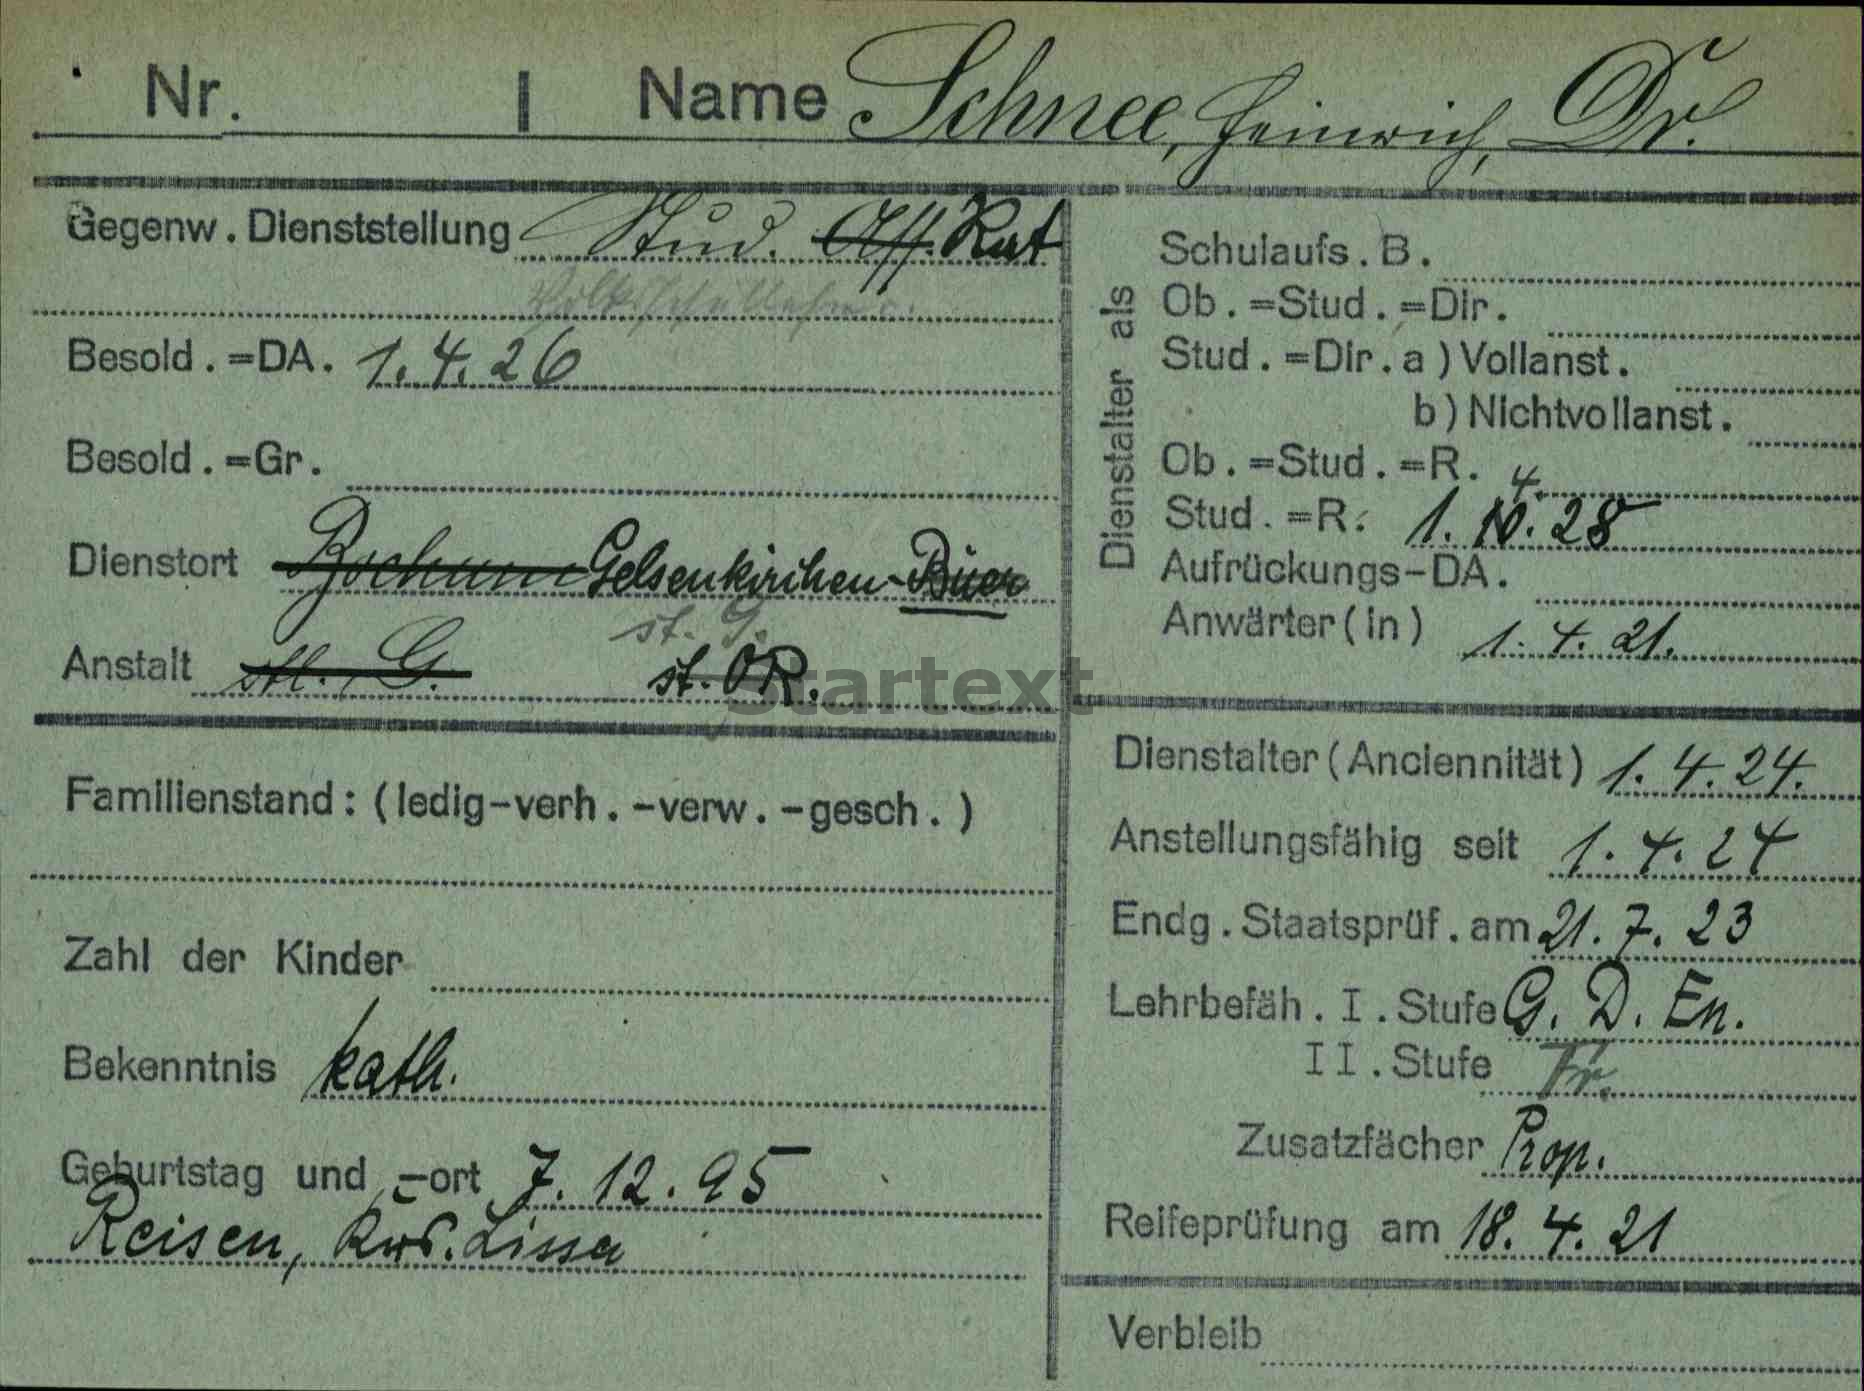 Nr. | Name Schnee, Heinrich, Dr.
Gegenw. Dienststellung Stud. Ass. Rat
Volksschullehrer.
Besold.=DA. 1.4.26
Besold.=Gr.
Dienstort Bochum Gelsenkirchen-Buer
st. G.
Anstalt stl. G. st. OR.
Familienstand: (ledig-verh.-verw.-gesch.)
Zahl der Kinder
Bekenntnis kath.
Geburtstag und -ort 7.12.95
Reisen, Krs. Lissa
Dienstalter als
Schulaufs.B.
Ob.=Stud.=Dir.
Stud.=Dir.a) Vollanst.
b) Nichtvollanst.
Ob.=Stud.=R.
4.
Stud.=R. 1.10.28
Aufrückungs-DA.
Anwärter(in) 1.4.21.
Dienstalter (Anciennität) 1.4.24.
Anstellungsfähig seit 1.4.24
Endg.Staatsprüf.am 21.7.23
Lehrbefäh. I.Stufe G. D. En.
II.Stufe Fr.
Zusatzfächer Prop.
Reifeprüfung am 18.4.21
Verbleib
Startext